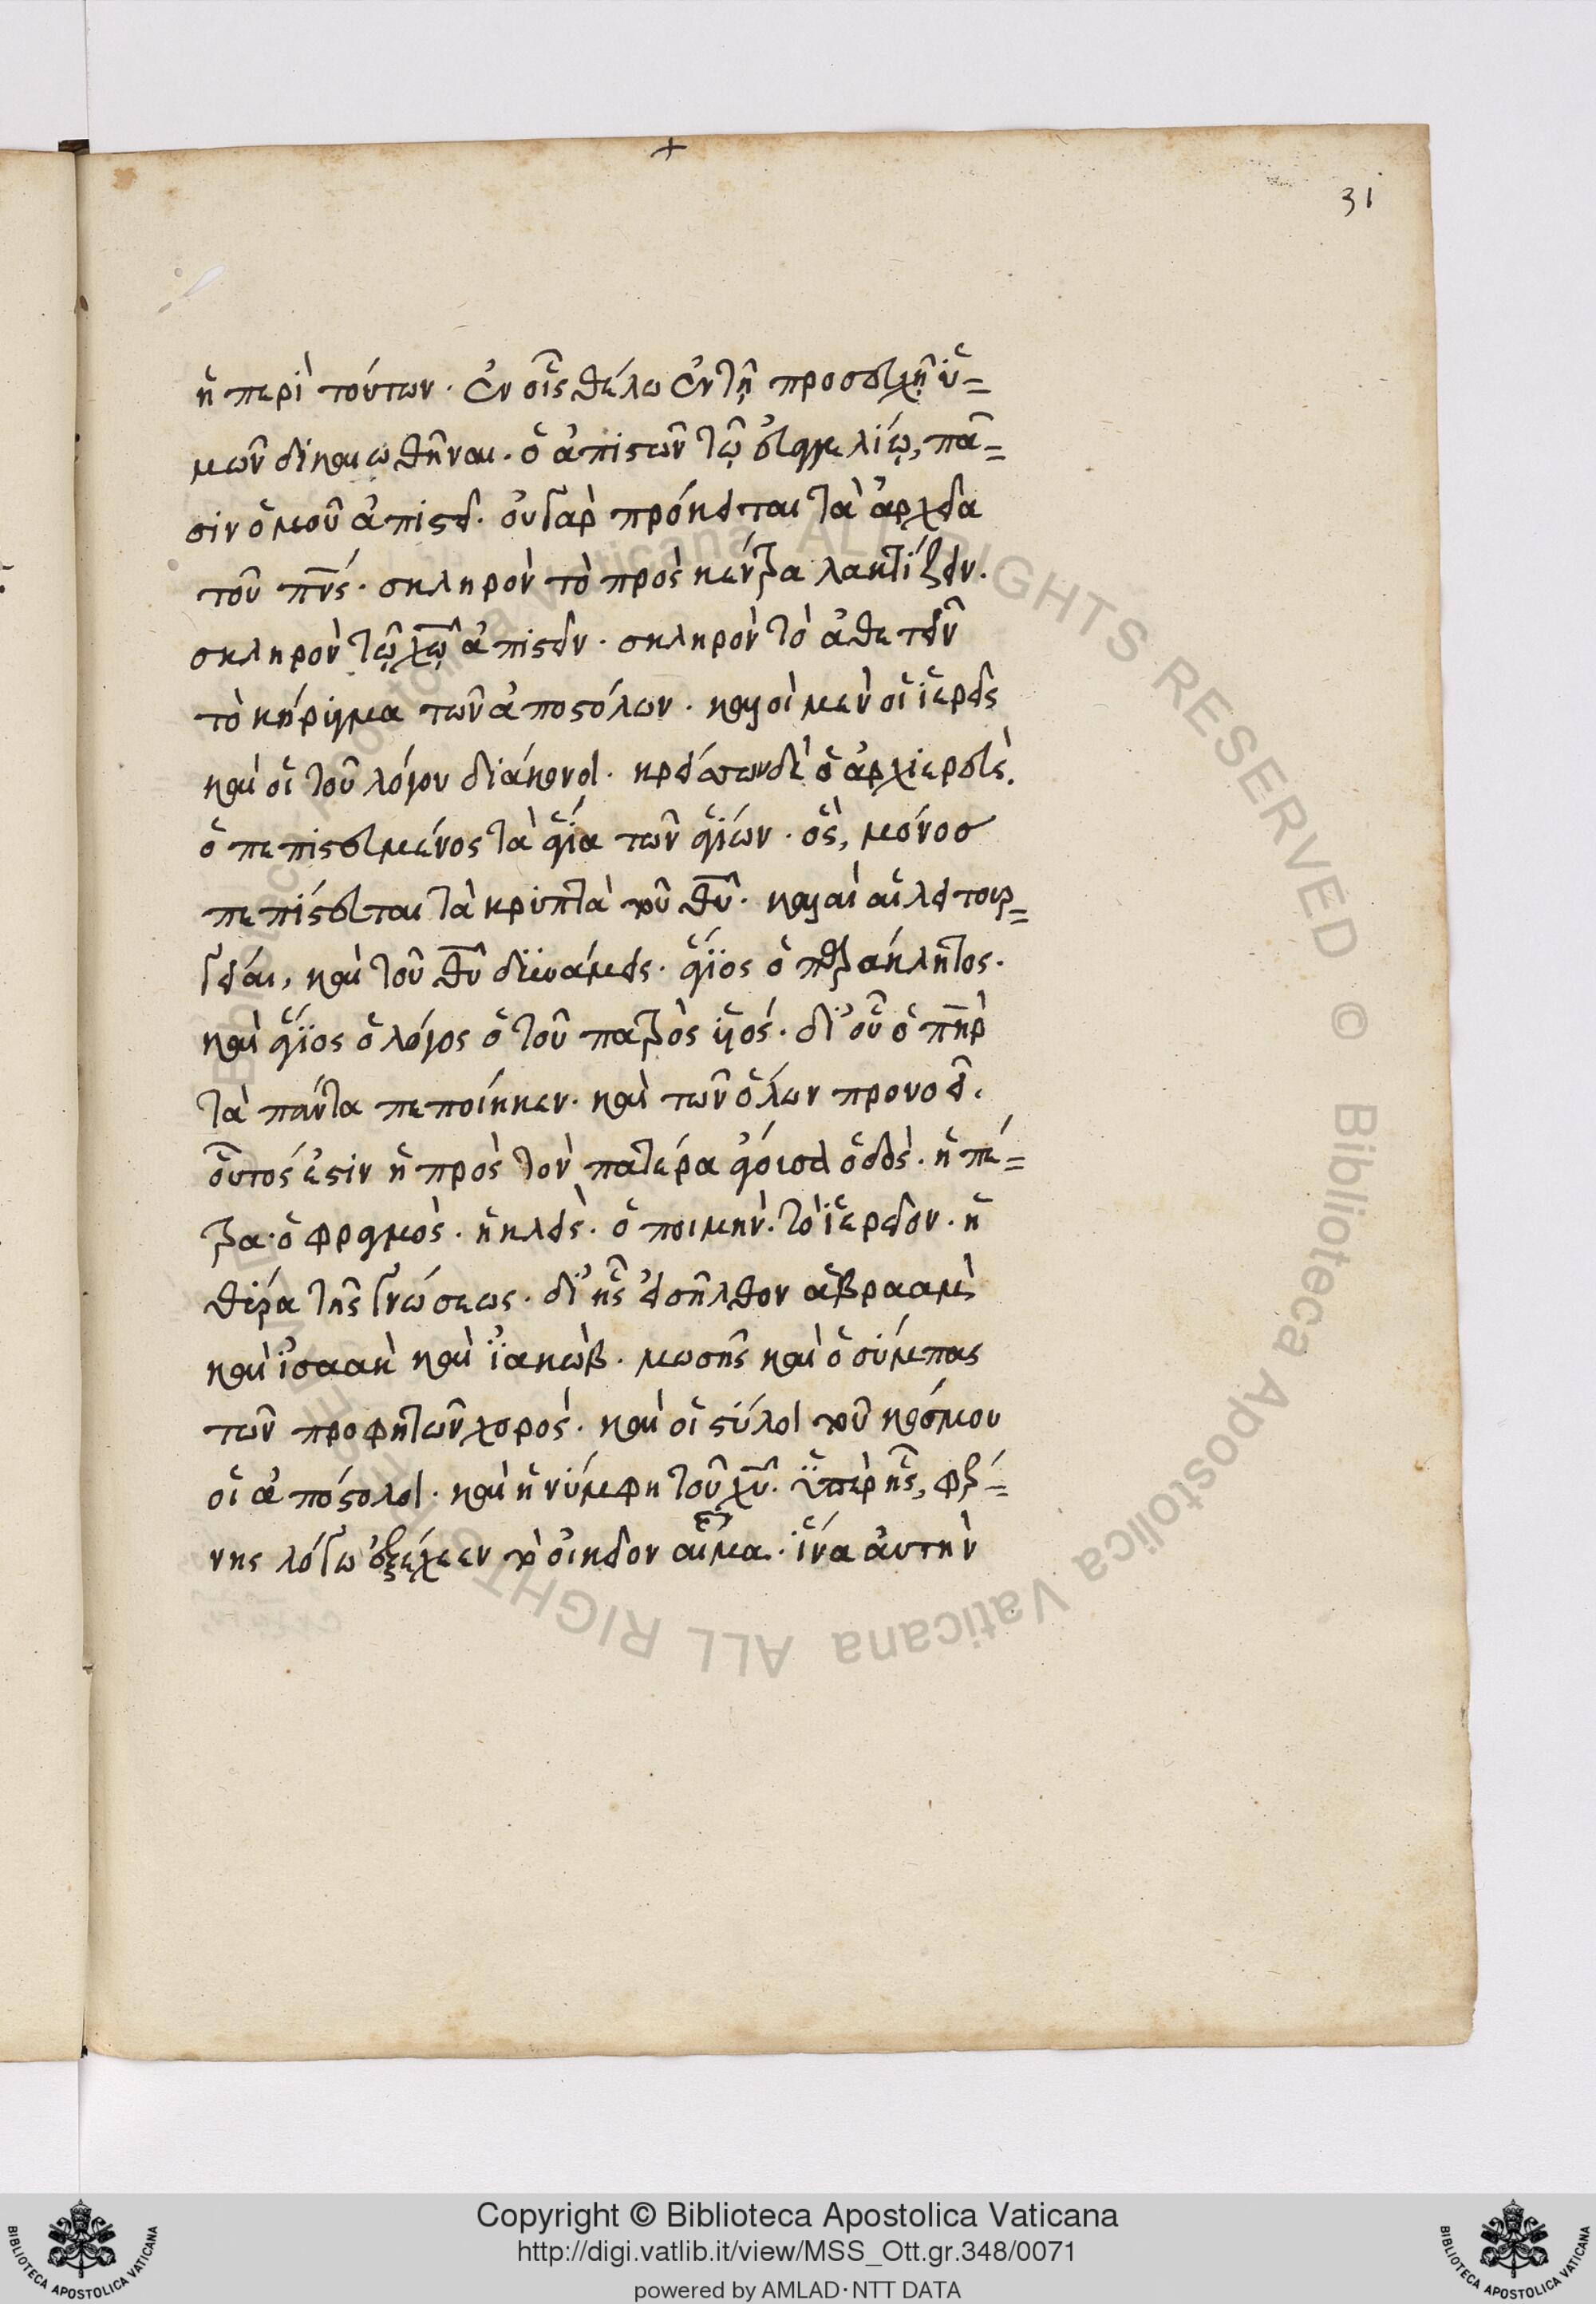 +
31
ἢ περὶ τούτων. ἐν οἷς θέλω ἐν τῇ προσευχῇ ὑ=
μῶν δικαιωθῆναι. ὁ ἀπιστῶν τῷ εὐαγγελίῳ, πᾶ=
σιν ὁμοῦ ἀπιστεῖ. οὐ γὰρ πρόκειται τὰ ἀρχεῖα
τοῦ πνς. σκληρὸν τὸ πρὸς κέντρα λακτίζειν.
σκληρὸν τῷ χῷ ἀπιστεῖν. σκληρὸν τὸ ἀθετεῖν
τὸ κήριγμα τῶν ἀποστόλων. καλοὶ μὲν οἱ ἱερεῖς
καὶ οἱ τοῦ λόγου διάκονοι. κρείσσων δὲ ὁ ἀρχιερεὺς.
ὁ πεπιστευμένος τὰ ἅγια τῶν ἁγίων. ὃς, μόνος
πεπίστευται τὰ κρυπτὰ τοῦ θῦ. καλαὶ αἱ λειτουρ=
γείαι, καὶ τοῦ θῦ δυνάμεις. ἅγιος ὁ παράκλητος.
καὶ ἅγιος ὁ λόγος ὁ τοῦ πατρὸς υἱός. δι' οὗ ὁ πηρ
τὰ πάντα πεποίηκεν. καὶ τῶν ὅλων προνοεῖ.
οὗτός ἐστιν ἡ πρὸς τὸν πατέρα ἄγουσα ὁδὸς. ἡ πέ=
τρα. ὁ φραγμὸς. ἡ κλεὶς. ὁ ποιμὴν. τὸ ἱερεῖον. ἡ
θύρα τῆς γνώσεως. δι' ἧς εἰσῆλθον ἁβραὰμ
καὶ ἰσαὰκ καὶ ἰακὼβ. μωσῆς καὶ ὁ σύμπας
τῶν προφητῶν χορὸς. καὶ οἱ στύλοι τοῦ κόσμου
οἱ ἀπόστολοι. καὶ ἡ νύμφη τοῦ χῦ. ὑπὲρ ἧς, φερ=
νης λόγω ἐξέχεεν τὸ οἰκεῖον αἷμα. ἵνα αὐτὴν
Copyright © Biblioteca Apostolica Vaticana
http://digi.vatlib.it/view/MSS_Ott.gr.348/0071
powered by AMLAD·NTT DATA